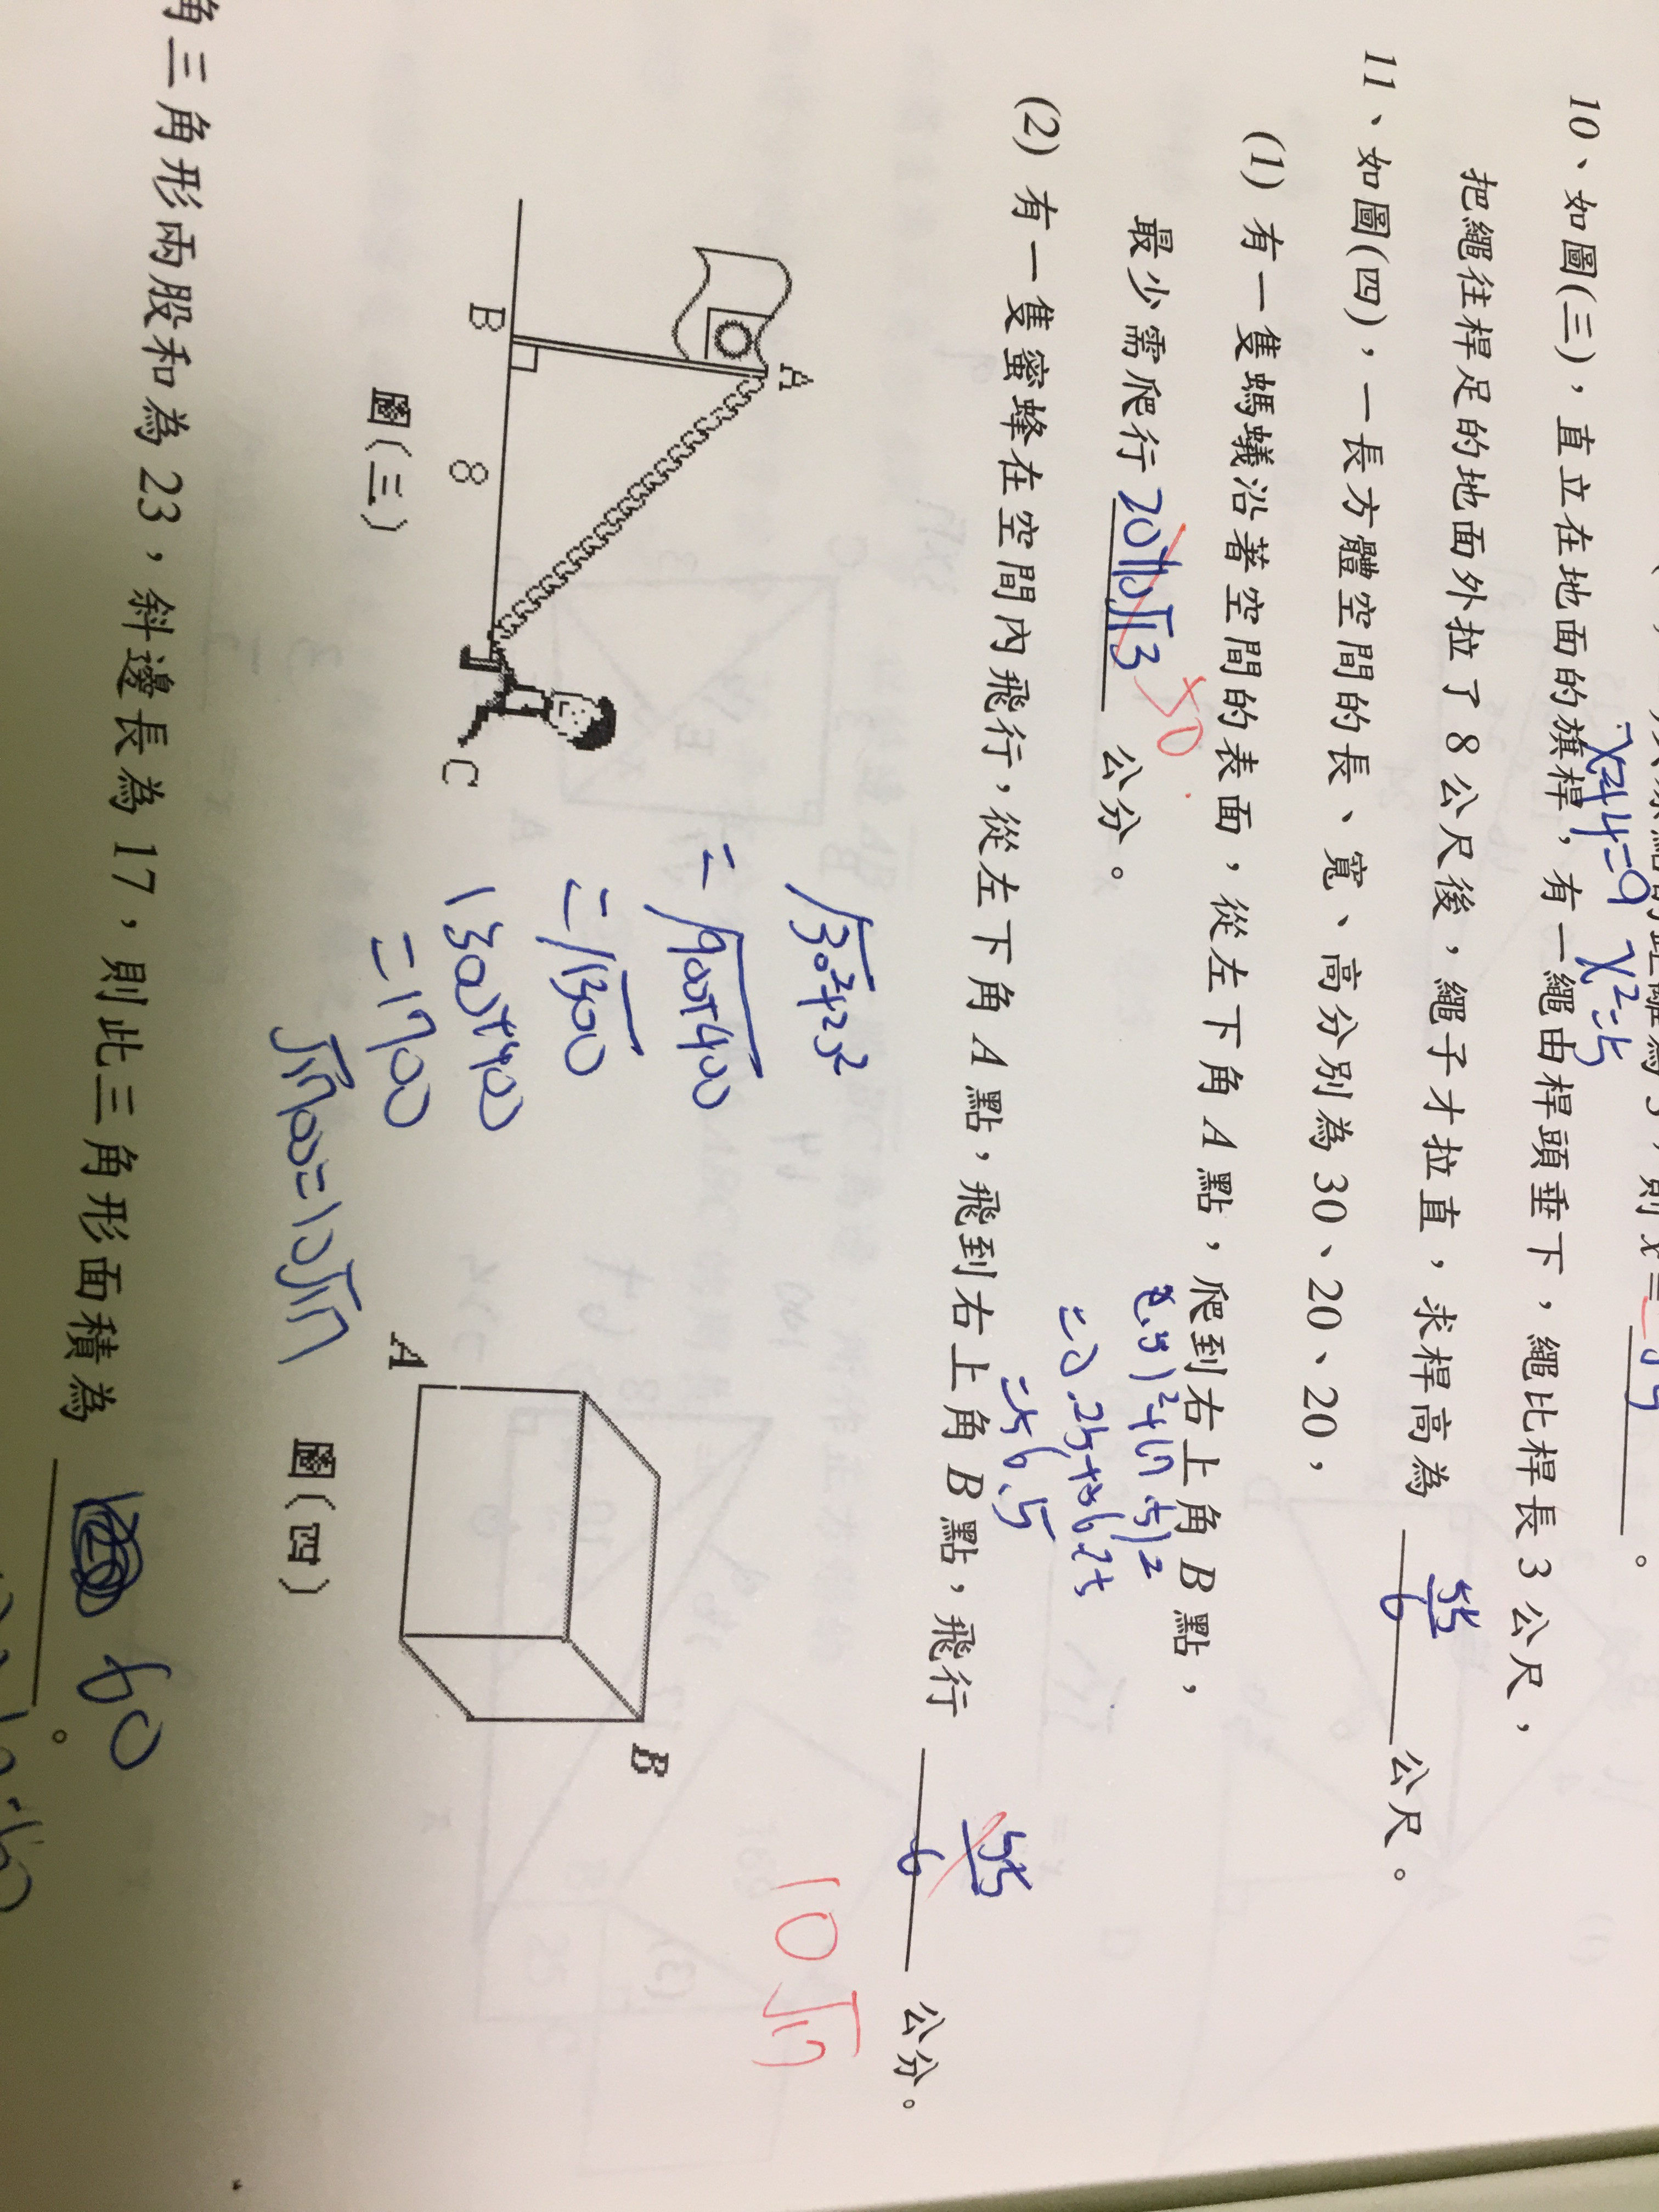 則 x =
10、如圖(三)，直立在地面的旗桿，有一繩由桿頭垂下，繩比桿長 3 公尺，
把繩往桿足的地面外拉了 8 公尺後，繩子才拉直，求桿高為 55/6 公尺。
11、如圖(四)，一長方體空間的長、寬、高分別為 30、20、20，
(1) 有一隻螞蟻沿著空間的表面，從左下角 A 點，爬到右上角 B 點，
最少需爬行 公分。
50
(2) 有一隻蜜蜂在空間內飛行，從左下角 A 點，飛到右上角 B 點，飛行 55/6 公分。
10√17
x²+4=9 x²=5
=56.5
√30²+20²
=√900+400
=√1300
1300+400
=1700
√1700=10√17
A
B
8
C
圖(三)
A
B
圖(四)
角三角形兩股和為 23，斜邊長為 17，則此三角形面積為 60 。